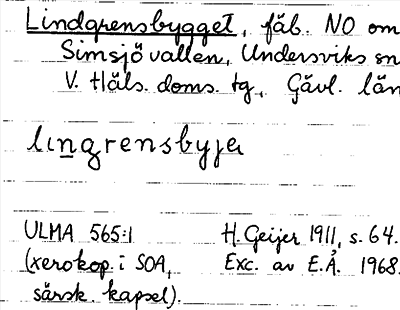 Lindgrensbygget, fäb. NO om
Simsjövallen, Undersviks sn
V. Häls. doms. tg, Gävl. län
lıngrensbyja
ULMA 565:1 H. Geijer 1911, s. 64.
(xerokop. i SOA, Exc. av E.Å. 1968.
särsk. kapsel).